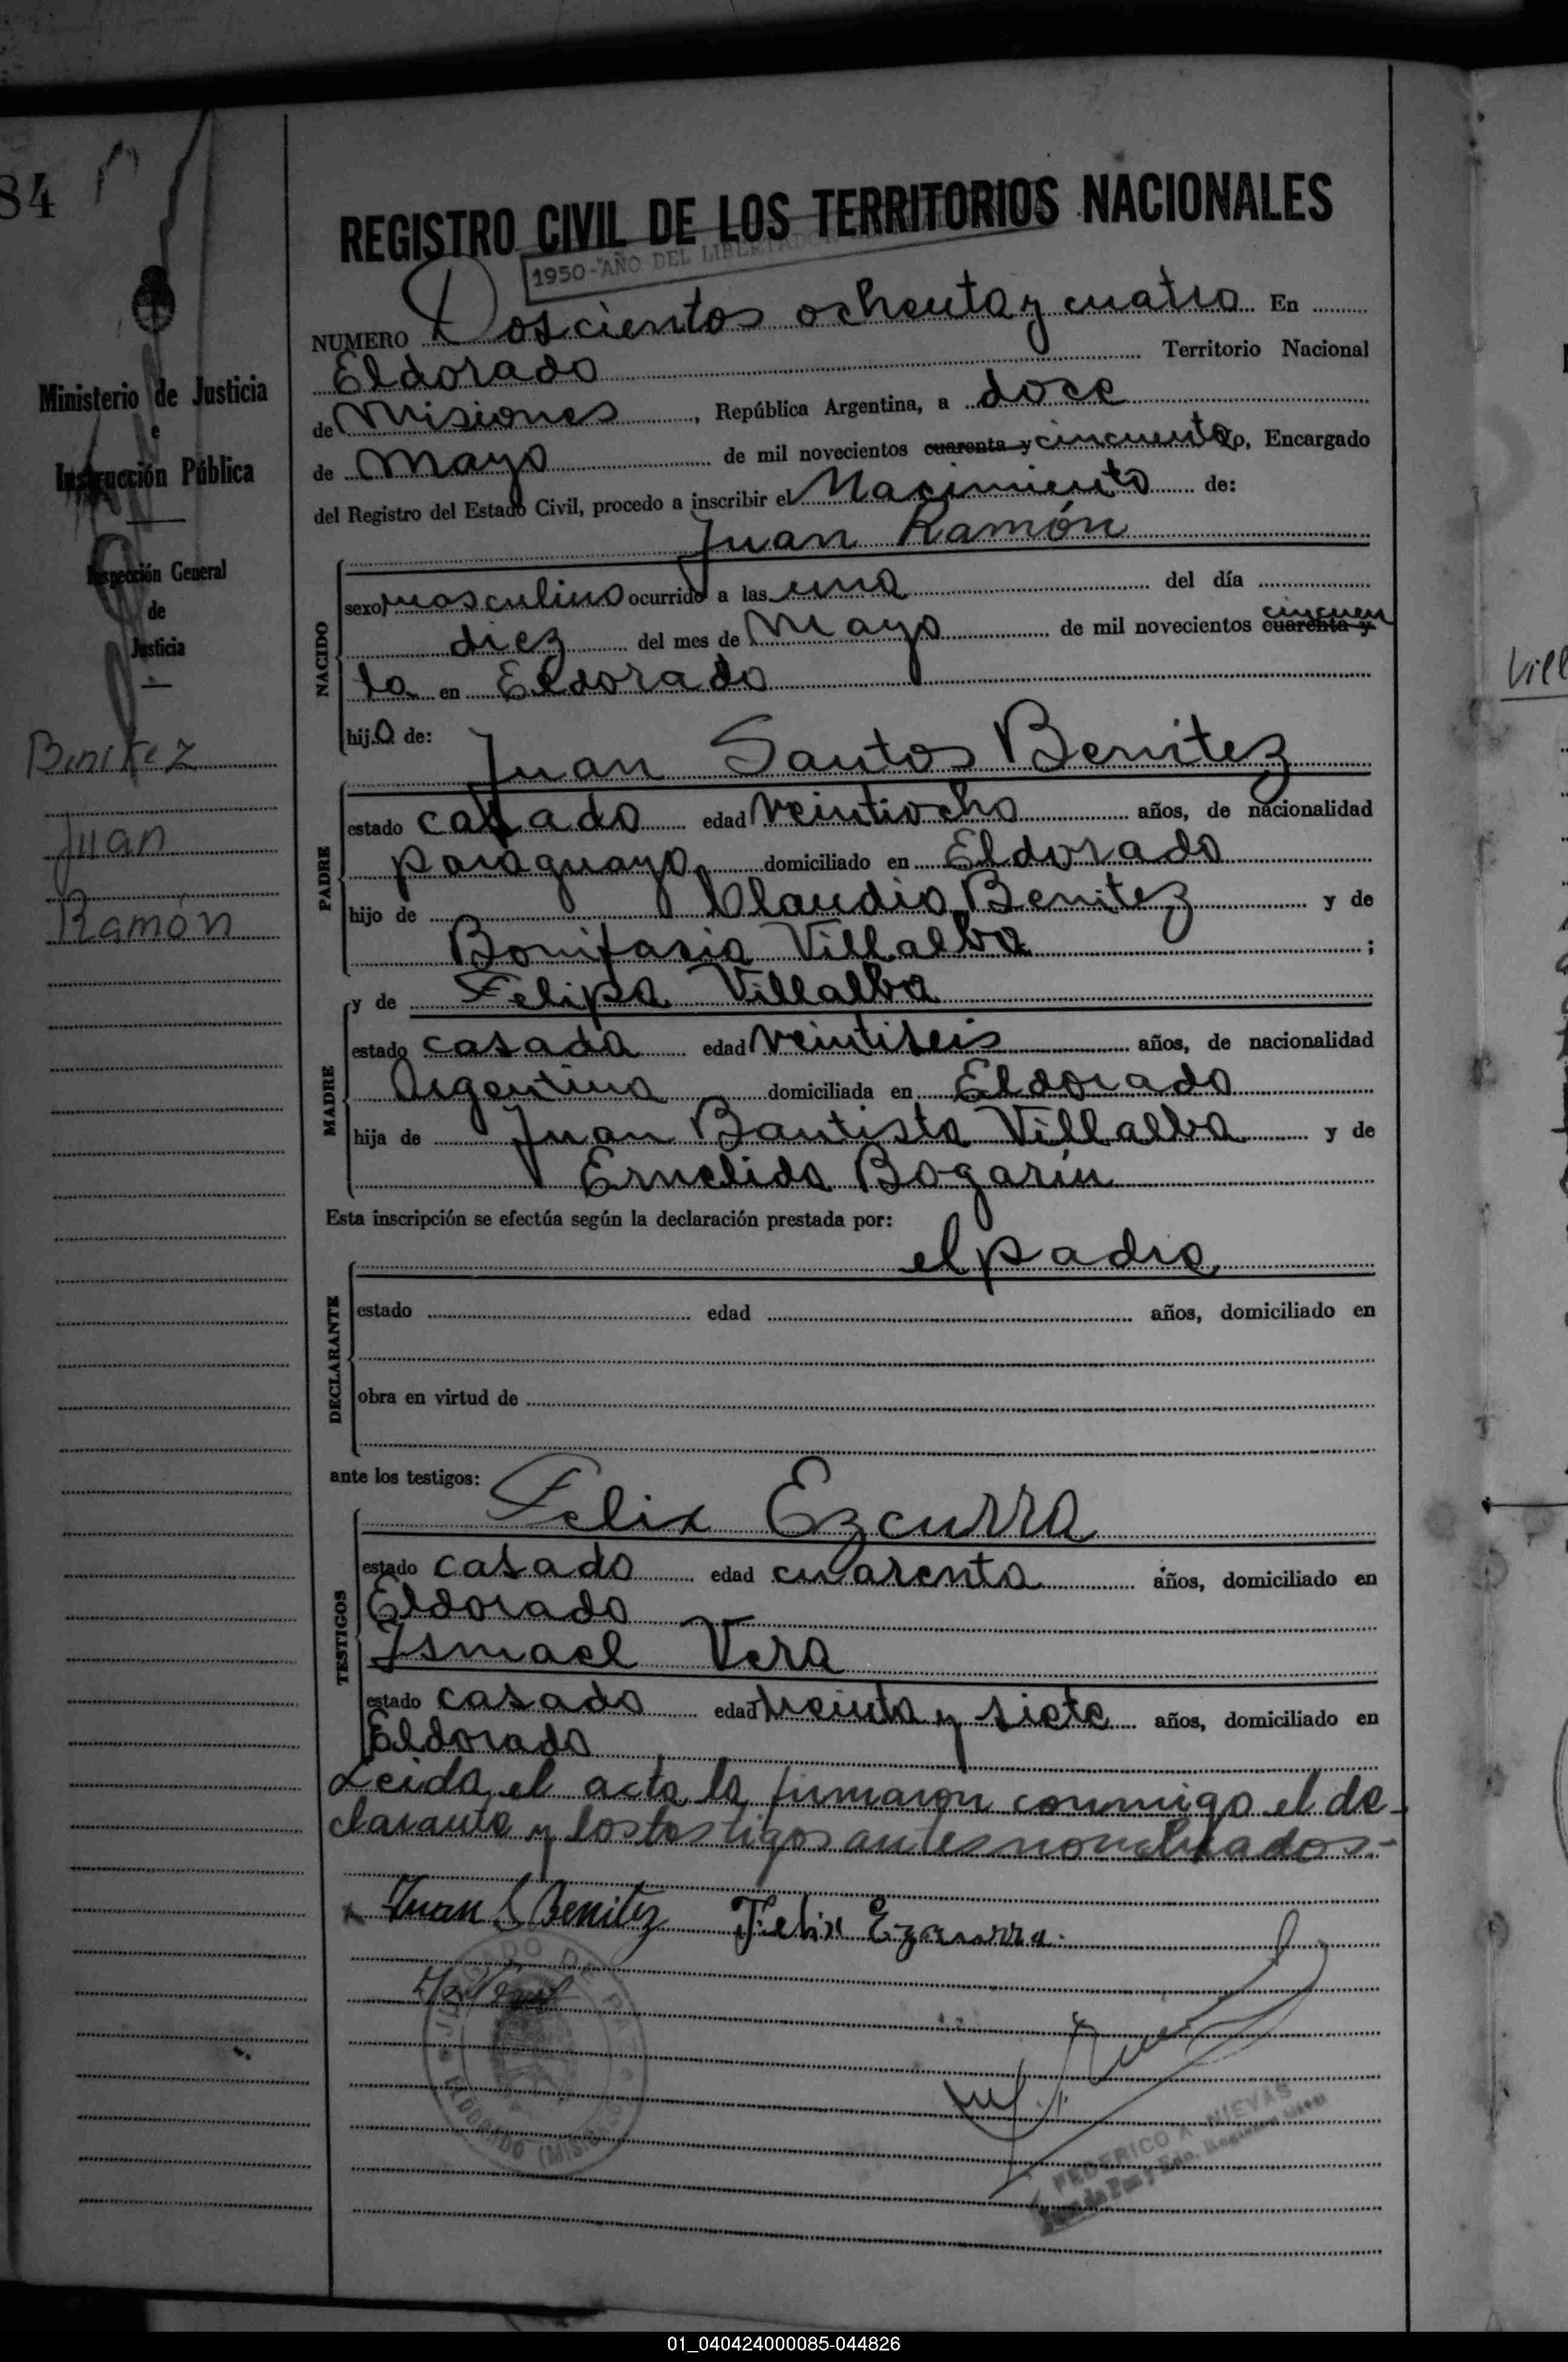 84
Ministerio de Justicia
e
Instrucción Pública
Inspección General
de
Justicia
Benitez
Juan
Ramón
REGISTRO CIVIL DE LOS TERRITORIOS NACIONALES
1950-"AÑO DEL LIBERTADOR
NUMERO Doscientos ochenta y cuatro En
Eldorado Territorio Nacional
de Misiones, República Argentina, a doce
de Mayo de mil novecientos cuarenta y cincuenta yo, Encargado
del Registro del Estado Civil, procedo a inscribir el Nacimiento de:
Juan Ramón
NACIDO
sexo masculino ocurrido a las una del día
diez del mes de Mayo de mil novecientos cuarenta y cincuen
ta en Eldorado
hijo de:
Juan Santos Benitez
PADRE
estado casado edad veintiocho años, de nacionalidad
paraguaya domiciliado en Eldorado
hijo de Claudio Benitez y de
Bonifasia Villalba;
MADRE
y de Felipa Villalba
estado casada edad veintiseis años, de nacionalidad
Argentina domiciliada en Eldorado
hija de Juan Bautista Villalba y de
Ernelida Bogarín
Esta inscripción se efectúa según la declaración prestada por:
el padre
DECLARANTE
estado edad años, domiciliado en
obra en virtud de
ante los testigos:
Felix Ezcurra
TESTIGOS
estado casado edad cuarenta años, domiciliado en
Eldorado
Ismael Vera
estado casado edad treinta y siete años, domiciliado en
Eldorado
Leida el acta la firmaron conmigo el de-
clarante y los testigos antes nombrados.-
Juan S Benitez Felix Ezcurra
JUZGADO DE PAZ
ELDORADO (MISIONES)
FEDERICO A. NIEVAS
Vill
01_040424000085-044826